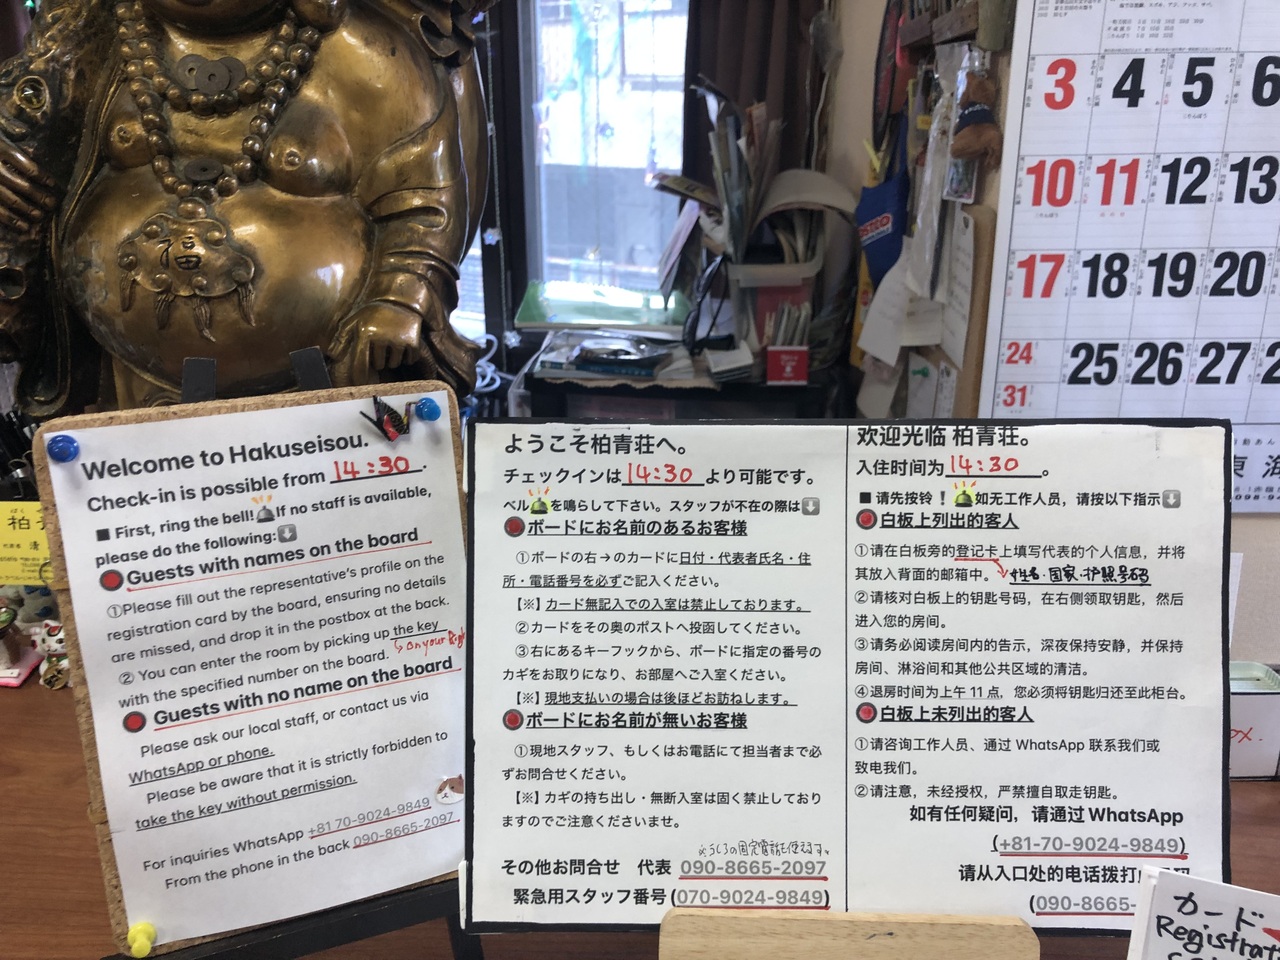 福
3 4 5 6
10 11 12 13
17 18 19 20
24 25 26 27
31
Welcome to Hakuseisou.
Check-in is possible from 14:30.
■ First, ring the bell! If no staff is available,
please do the following:⬇
Guests with names on the board
①Please fill out the representative's profile on the
registration card by the board, ensuring no details
are missed, and drop it in the postbox at the back.
② You can enter the room by picking up the key
with the specified number on the board.
Guests with no name on the board
Please ask our local staff, or contact us via
WhatsApp or phone.
Please be aware that it is strictly forbidden to
take the key without permission.
For inquiries WhatsApp +81 70-9024-9849
From the phone in the back 090-8665-2097
ようこそ柏青荘へ。
チェックインは 14:30 より可能です。
ベル🛎を鳴らして下さい。スタッフが不在の際は⬇
ボードにお名前のあるお客様
①ボードの右→のカードに日付・代表者氏名・住
所・電話番号を必ずご記入ください。
【※】カード無記入での入室は禁止しております。
②カードをその奥のポストへ投函してください。
③右にあるキーフックから、ボードに指定の番号の
カギをお取りになり、お部屋へご入室ください。
【※】現地支払いの場合は後ほどお訪ねします。
ボードにお名前が無いお客様
①現地スタッフ、もしくはお電話にて担当者まで必
ずお問合せください。
【※】カギの持ち出し・無断入室は固く禁止しており
ますのでご注意くださいませ。
※うしろの固定電話も使えます。
その他お問合せ 代表 090-8665-2097
緊急用スタッフ番号 (070-9024-9849)
欢迎光临 柏青荘。
入住时间为 14:30 。
■ 请先按铃 ！🛎如无工作人员，请按以下指示⬇
白板上列出的客人
①请在白板旁的登记卡上填写代表的个人信息，并将
其放入背面的邮箱中。 姓名・国家・护照号码
②请核对白板上的钥匙号码，在右侧领取钥匙，然后
进入您的房间。
③请务必阅读房间内的告示，深夜保持安静，并保持
房间、淋浴间和其他公共区域的清洁。
④退房时间为上午 11 点，您必须将钥匙归还至此柜台。
白板上未列出的客人
①请咨询工作人员、通过 WhatsApp 联系我们或
致电我们。
②请注意，未经授权，严禁擅自取走钥匙。
如有任何疑问，请通过 WhatsApp
(+81-70-9024-9849)
请从入口处的电话拨打
(090-8665-
カード
Registrat